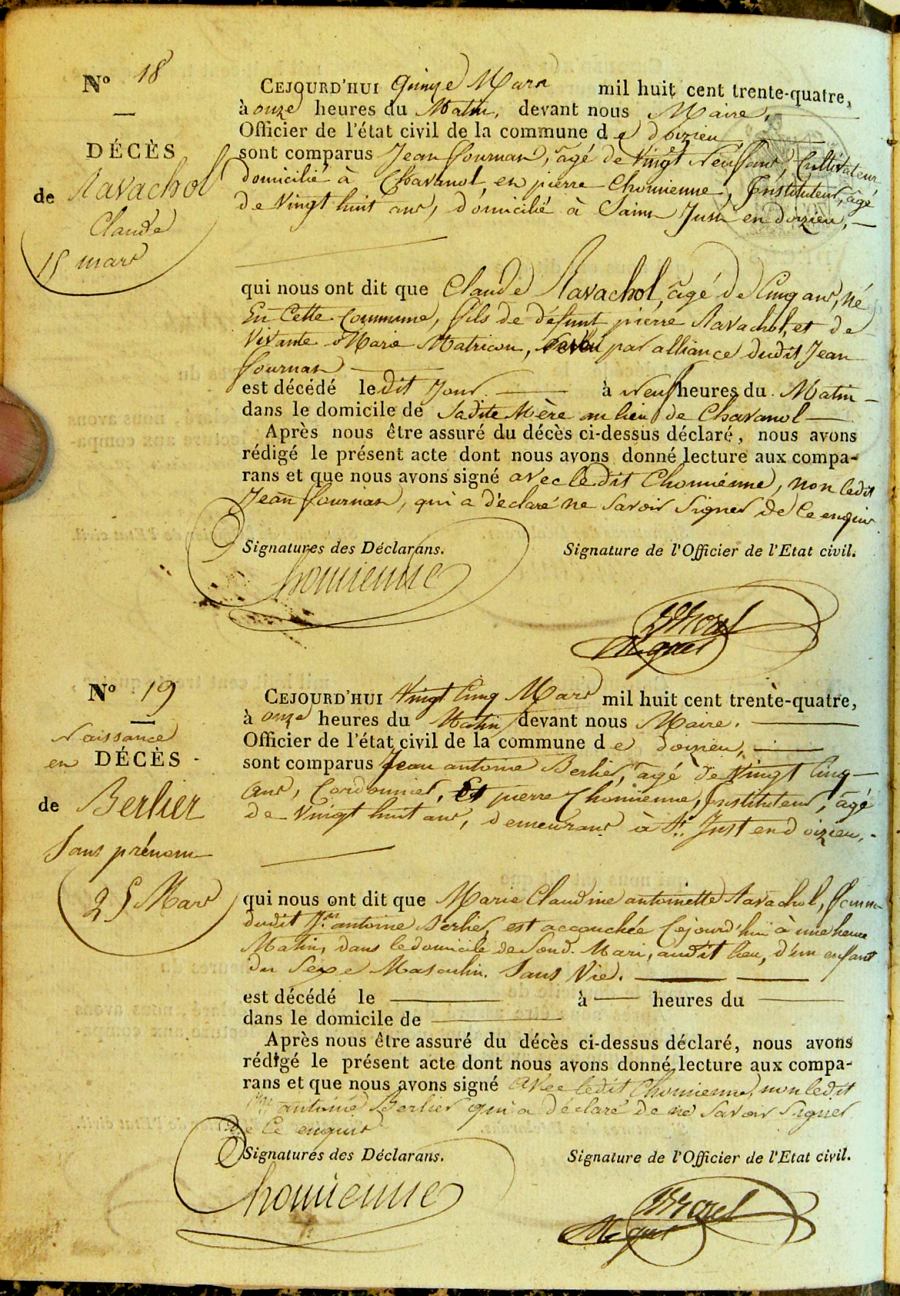 N.º 18
DÉCÈS
de Ravachol
Claude
15 mars
CEJOURD'HUI quinze Mars mil huit cent trente-quatre,
à onze heures du Matin, devant nous Maire,
Officier de l'état civil de la commune d e doizieu
sont comparus Jean fournas, âgé de vingt Neuf ans, Cultivateur
domicilié à Chavanol, et pierre Chomienne, Instituteur, âgé
de Vingt huit ans, domicilié à Saint Just en doizieu,
qui nous ont dit que Claude Ravachol, âgé de Cinq ans, né
En Cette Commune, fils de défunt pierre Ravachol, et de
Vivante Marie Matricon, par alliance dudit Jean
fournas
est décédé le dit Jour à Neuf heures du Matin
dans le domicile de Sadite Mère au lieu de Chavanol
Après nous être assuré du décès ci-dessus déclaré, nous avons
rédigé le présent acte dont nous avons donné lecture aux compa-
rans et que nous avons signé avec ledit Chomienne, non ledit
Jean fournas, qui a déclaré ne Savoir Signer de Ce enquis
Signatures des Déclarans. Signature de l'Officier de l'Etat civil.
Chomienne
N.º 19
Naissance
en DÉCÈS
de Berlier
Sans prénom
25 Mars
CEJOURD'HUI Vingt Cinq Mars mil huit cent trente-quatre,
à onze heures du Matin devant nous Maire.
Officier de l'état civil de la commune d e doizieu,
sont comparus Jean antoine Berlier, âgé de Vingt Cinq
ans, Cordonnier, Et pierre Chomienne, Instituteur, âgé
de Vingt huit ans, demeurans à St. Just en doizieu,
qui nous ont dit que Marie Claudine antoinette Ravachol, femme
dudit Jn. antoine Berlier, est accouchée Cejourd'hui à une heure
Matin, dans le domicile de Sond. Mari, audit lieu, d'un enfant
du Sexe Masculin. Sans Vie.
est décédé le à heures du
dans le domicile de
Après nous être assuré du décès ci-dessus déclaré, nous avons
rédigé le présent acte dont nous avons donné lecture aux compa-
rans et que nous avons signé avec ledit Chomienne, non ledit
Jn. antoine Berlier qui a déclaré de ne Savoir Signer
de Ce enquis
Signatures des Déclarans. Signature de l'Officier de l'Etat civil.
Chomienne